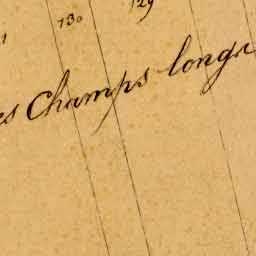 130
129
es Champs longs